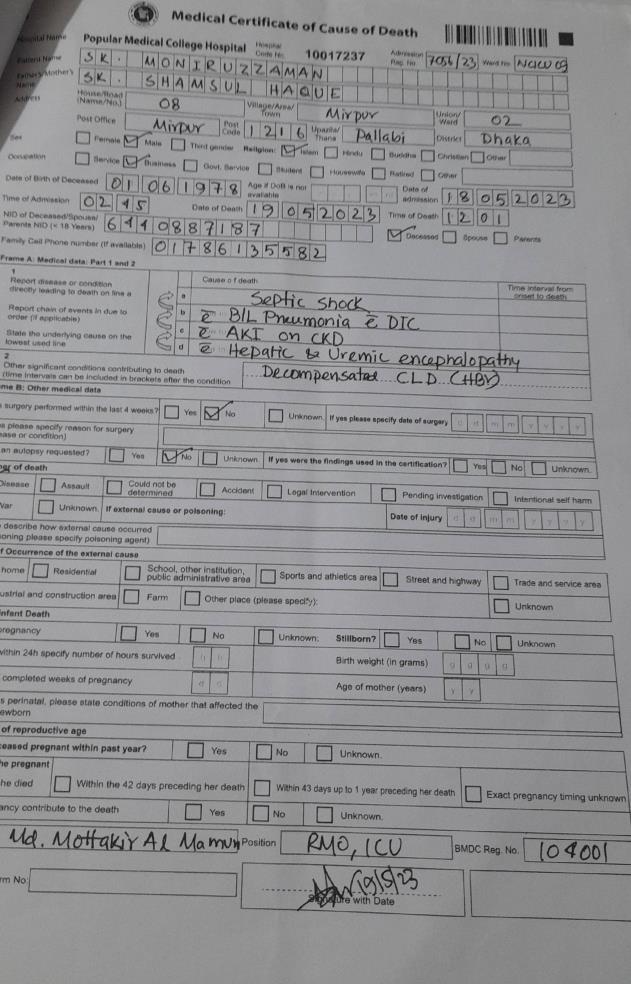 Medical Certificate of Cause of Death
Hospital Name Popular Medical College Hospital Hospital Code No: 10017237 Admission Reg. No 7056/23 Ward No
Patient Name SK. MONIRUZZAMAN
Father's/Mother's Name SK. SHAMSUL HAQUE
Address House/Road (Name/No.) 08 Village/Area/Town Mirpur Union/Ward 02
Post Office Mirpur Post Code 1216 Upazila/Thana Pallabi District Dhaka
Sex Female Male Third gender Religion: Islam Hindu Buddha Christian Other
Occupation Service Business Govt. Service Student Housewife Retired Other
Date of Birth of Deceased 01 06 1978 Age if DoB is not available Date of admission 18 05 2023
Time of Admission 02 45 Date of Death 19 05 2023 Time of Death 12 01
NID of Deceased/Spouse/Parents NID (< 18 Years) 6440887187 Deceased Spouse Parents
Family Cell Phone number (If available) 01786135582
Frame A: Medical data: Part 1 and 2
1 Cause of death Time interval from onset to death
Report disease or condition directly leading to death on line a
a Septic shock
Report chain of events in due to order (if applicable)
b c̄ B/L Pneumonia c̄ DIC
State the underlying cause on the lowest used line
c c̄ AKI on CKD
d c̄ Hepatic & Uremic encephalopathy
2
Other significant conditions contributing to death (time intervals can be included in brackets after the condition Decompensated CLD (HBV)
me B: Other medical data
surgery performed within the last 4 weeks? Yes No Unknown. If yes please specify date of surgery d d m m y y y y
s please specify reason for surgery
ase or condition)
an autopsy requested? Yes No Unknown. If yes were the findings used in the certification? Yes No Unknown.
of death
Disease Assault Could not be determined Accident Legal Intervention Pending investigation Intentional self harm
War Unknown. If external cause or poisoning: Date of injury d d m m y y y y
describe how external cause occurred
oning please specify poisoning agent)
f Occurrence of the external cause
home Residential School, other institution, public administrative area Sports and athletics area Street and highway Trade and service area
ustrial and construction area Farm Other place (please specify): Unknown
nfant Death
pregnancy Yes No Unknown: Stillborn? Yes No Unknown
within 24h specify number of hours survived h h Birth weight (in grams) g g g g
completed weeks of pregnancy d d Age of mother (years) y y
s perinatal, please state conditions of mother that affected the
ewborn
of reproductive age
ceased pregnant within past year? Yes No Unknown.
he pregnant
he died Within the 42 days preceding her death Within 43 days up to 1 year preceding her death Exact pregnancy timing unknown
ancy contribute to the death Yes No Unknown.
Md. Mottakir Al Mamun Position RMO, ICU BMDC Reg. No. 104001
rm No: 19/5/23
Signature with Date